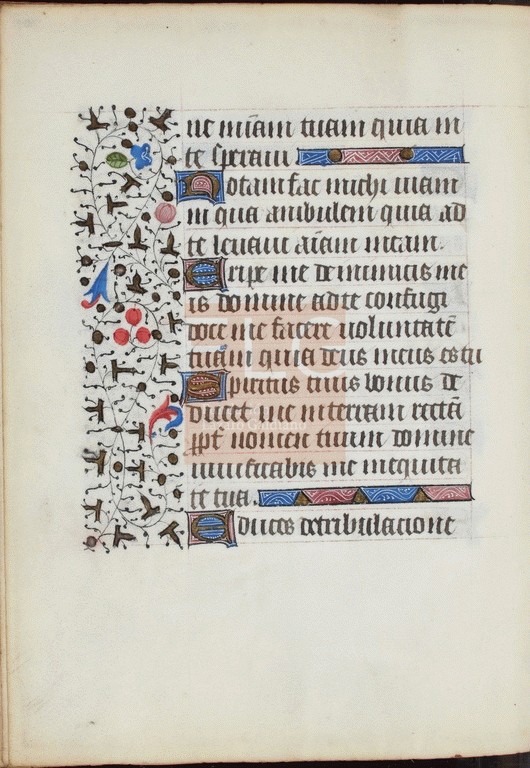 ne miam tuam quia in
te speraui
Notam fac michi uiam
in qua ambulem quia ad
te leuaui aiam meam.
Eripe me de inimicis me
is domine ad te confugi
doce me facere uoluntatē
tuam quia deus meus es tu
Spiritus tuus bonus de
ducet me in terram rectā
ppt nomen tuum domine
uiuificabis me in equita
te tua.
Educes de tribulacione